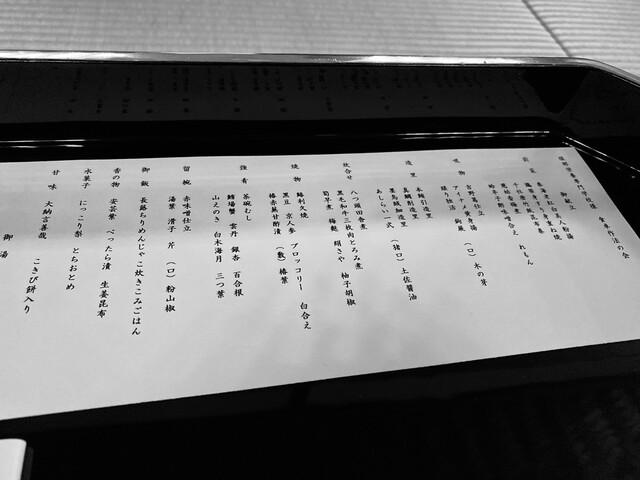 食事作法の会
御献立
前菜
れもん
吸物
吉野葛仕立
アイナメ黄身湯
(口) 木の芽
造里
本鮪引造里
真鯛削造里
あしらい一式 (猪口) 土佐醤油
炊合せ
八つ頭田舎煮
黒毛和牛三枚肉とろみ煮
筍早煮 梅麩 絹さや 柚子胡椒
焼物
鰆利久焼
黒豆 京人参 ブロッコリー 白合え
椿赤蕪甘酢漬 (敷) 椿葉
強肴
茶碗むし
鱈場蟹 雲丹 銀杏 百合根
山えのき 白木海月 三つ葉
留椀
赤味噌仕立
湯葉 滑子 芹 (口) 粉山椒
御飯
長藤ちりめんじゃこ炊きこみごはん
香の物
安芸紫 べったら漬 生姜昆布
水菓子
にっこり梨 とちおとめ
甘味
大納言善哉 こきび餅入り
御湯